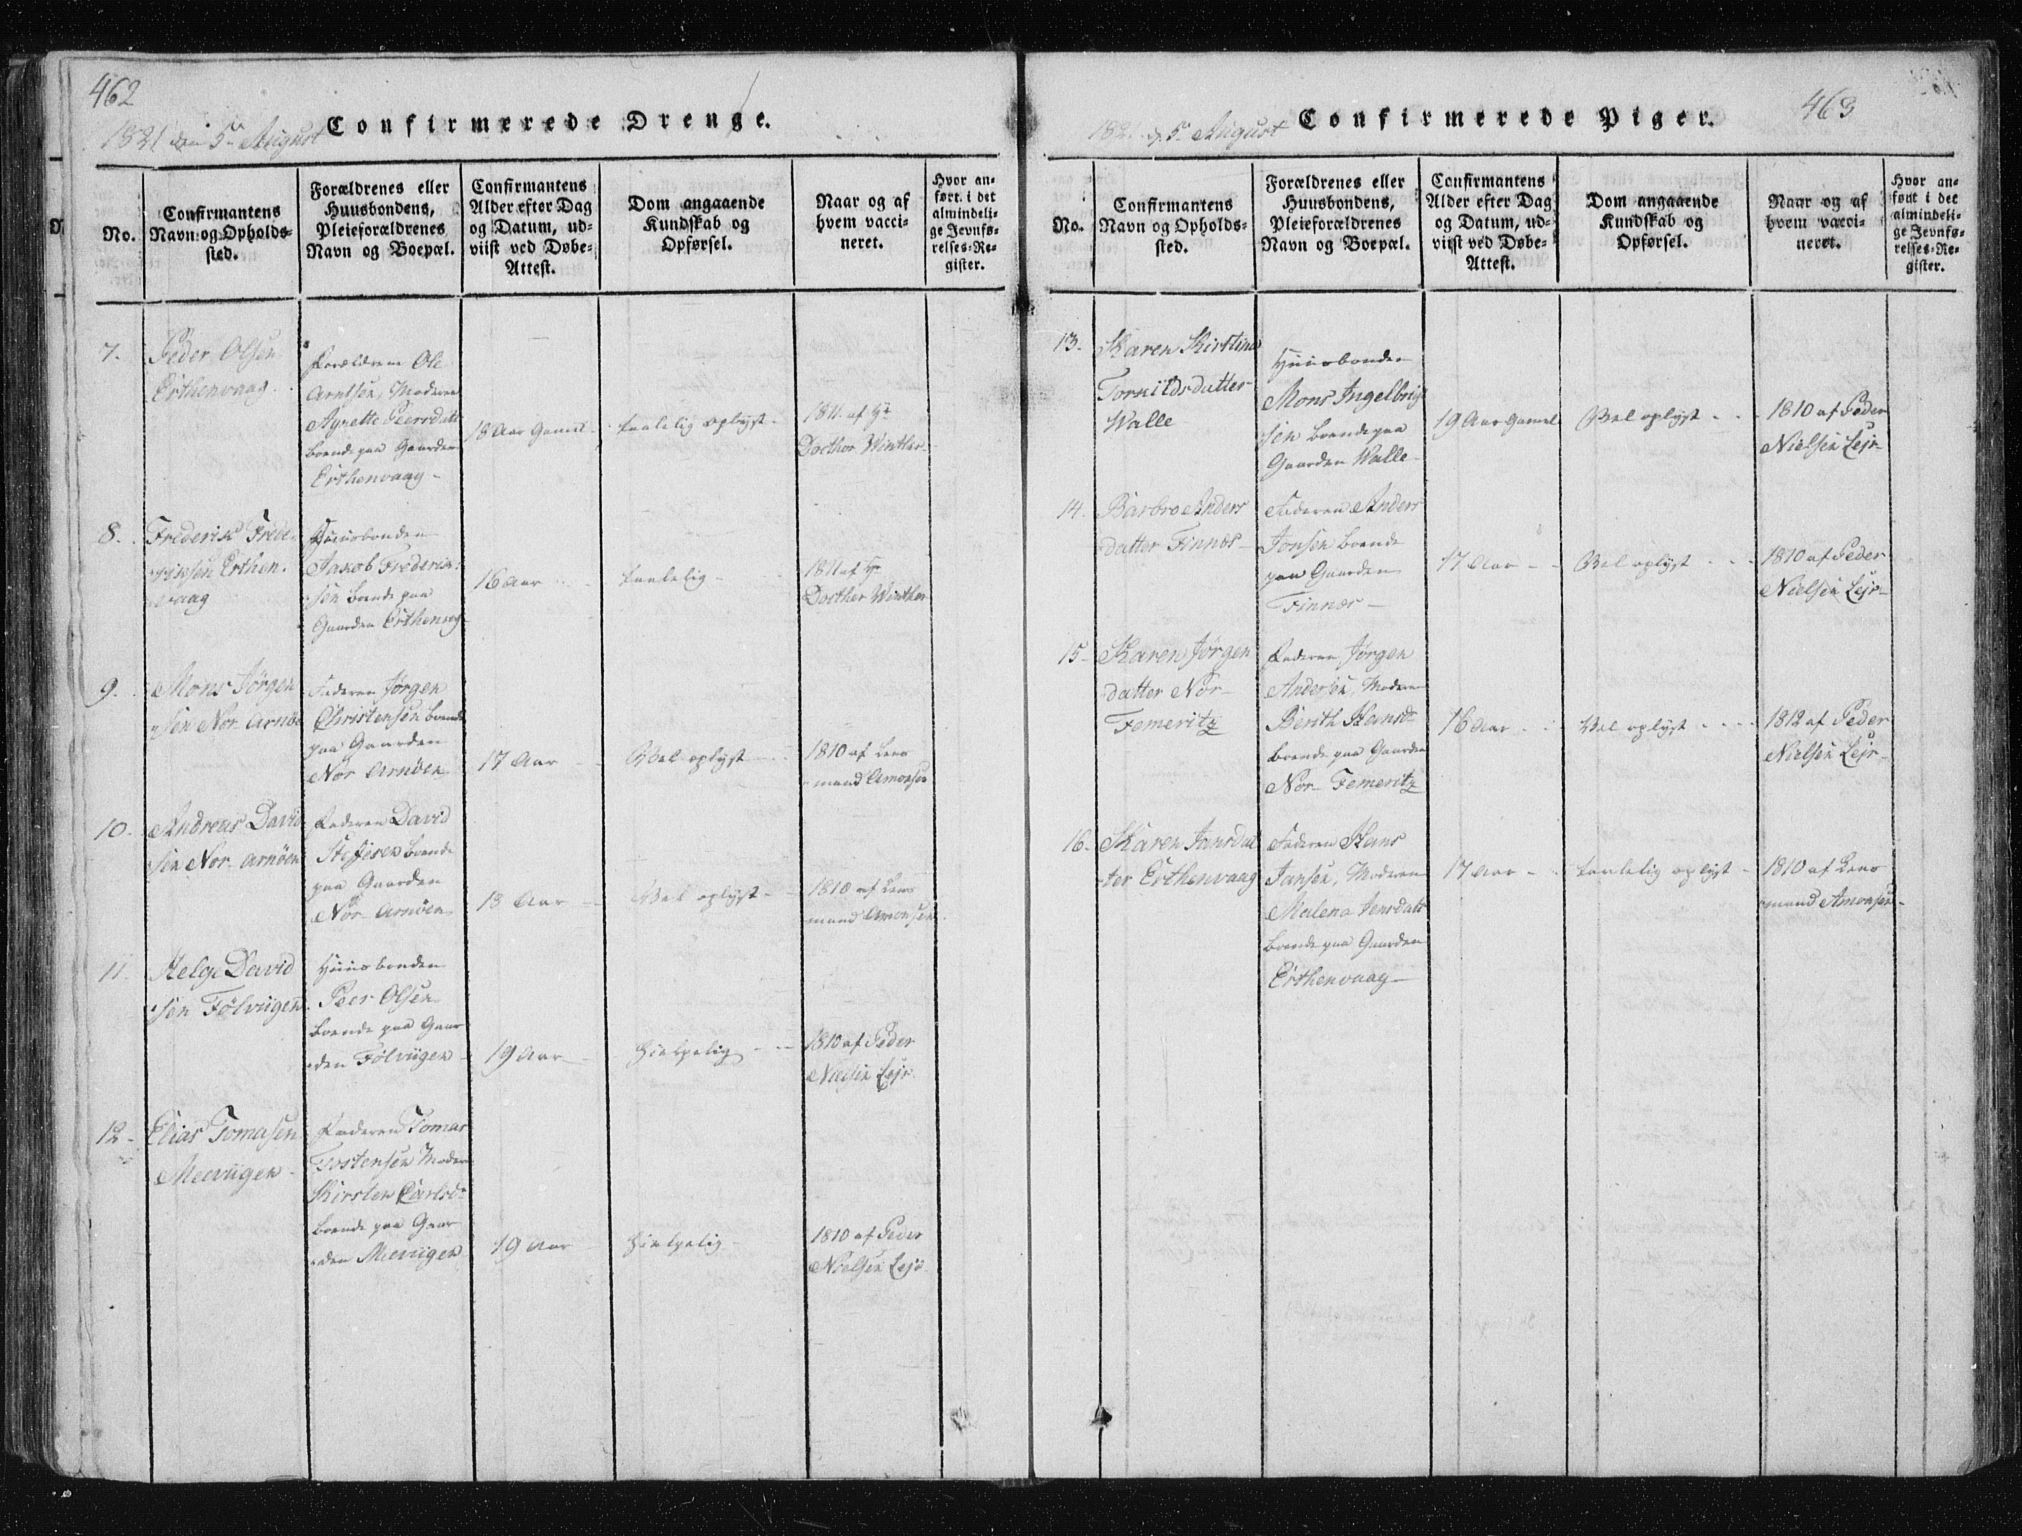 462
Confirmerede Drenge.
1821 den 5te August
No.
Confirmantens
Navn og Opholds-
sted.
Forældrenes eller
Huusbondens,
Pleieforældrenes
Navn og Boepæl.
Confirmantens
Alder efter Dag
og Datum, ud-
viist ved Døbe-
Attest.
Dom angaaende
Kundskab og
Opførsel.
Naar og af
hvem vacci-
neret.
Hvor an-
ført i det
almindeli-
ge Jevnfø-
relses-Re-
gister.
7.
Peder Olsen
Erthenvaag
Forældrene Ole
Arntsen, Moderen
Agnette Peersdatt
boende paa Gaarden
Erthenvaag
18 Aar Gamel
taalelig oplyst
1811 af Hr
Docthor Winther
8.
Frederik Frede-
riksen Erthen-
vaag
Huusbonden
Jakob Frederik-
sen boende paa
Gaarden Erthenvag
16 Aar
taalelig
1811 af Hr
Docther Winther
9.
Mons Jørgen
sen Nor Arnøe
Faderen Jørgen
Christensen boende
paa Gaarden
Nor Arnøen
17 Aar
Vel oplyst
1810 af Lens
mand Amonsen
10.
Andreas David
sen Nor Arnøen
Faderen David
Stefesen boende
paa Gaarden
Nor Arnøen
18 Aar
Vel oplyst
1810 af Lens
mand Amonsen
11.
Helge David
sen Fölvügen
Huusbonden
Peer Olsen
boende paa Gaar
den Fölvügen
19 Aar
Hielpelig
1810 af Peder
Nielsen Lejr
12
Elias Tomasen
Meevügen
Faderen Tomas
Tostensen Moder
Kirsten Carlsdr
boende paa Gaar
den Meevügen
19 Aar
Hielpelig
1810 af Peder
Nielsen Lejr
463
Confirmerede Piger.
182 d. 5te August
No.
Confirmantens
Navn og Opholds-
sted.
Forældrenes eller
Huusbondens,
Pleieforældrenes
Navn og Boepæl.
Confirmantens
Alder efter Dag
og Datum, ud-
viist ved Døbe-
Attest.
Dom angaaende
Kundskab og
Opførsel.
Naar og af
hvem vacci-
neret.
Hvor an-
ført i det
almindeli-
ge Jevnfø-
relses-Re-
gister.
13.
Karen Kirstina
Tornildsdatter
Walle
Huusbonden
Mons Ingelbrig
sen boende paa
Gaarden Walle
19 Aar Gamel
Vel oplyst
1810 af Peder
Nielsen Lejr
14.
Barbro Anders
datter Finnes
Faderen Anders
Jonsen boende
paa Gaarden
Finnes
17 Aar
Vel oplyst
1810 af Peder
Nielsen Lejr
15
Karen Jørgen
datter Nor
Femeritz
Faderen Jørgen
Andersen, Moderen
Berith Hansdr
boende paa Gaarden
Nor Femeritz
16 Aar
Vel oplyst
1812 af Peder
Nielsen Lejr
16.
Karen Jansdat
ter Erthenvaag
Faderen Hans
Jansen, Moderen
Malena Jensdatt
boende paa Gaarden
Erthenvaag
17 Aar
taalelig oplyst
1810 af Lens
mand Amonsen